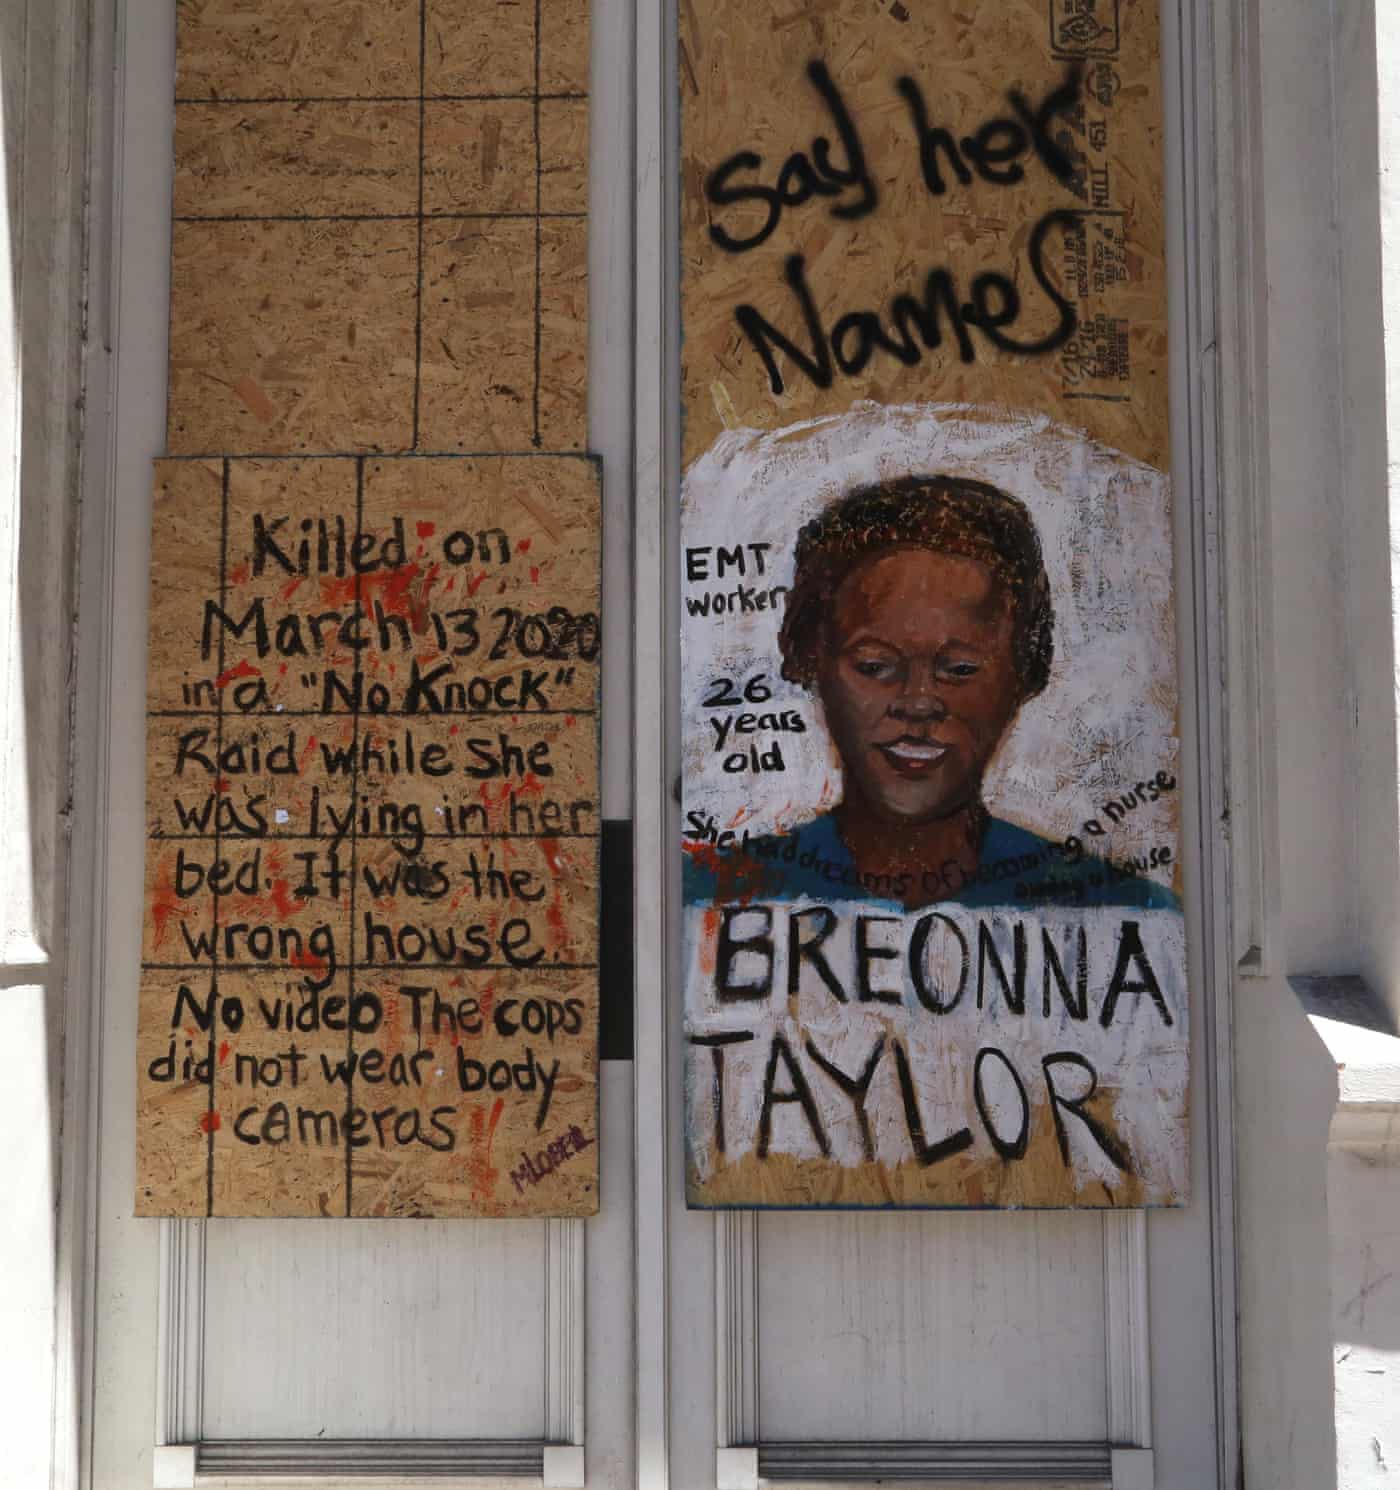 Killed on
March 13 2020
in a "No Knock"
Raid while she
was lying in her
bed. It was the
wrong house.
No video The cops
did not wear body
cameras
MLOBELL
Say her
Names
EMT
worker
26
years
old
She had dreams of becoming a nurse
owning a house
BREONNA
TAYLOR
MILL 451